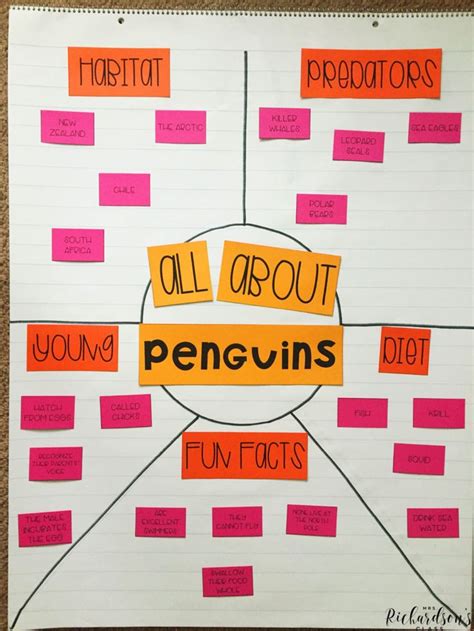 HABITAT
NEW
ZEALAND
THE ARCTIC
CHILE
SOUTH
AFRICA
PREDATORS
KILLER
WHALES
LEOPARD
SEALS
SEA EAGLES
POLAR
BEARS
ALL ABOUT
PENGUINS
YOUNG
HATCH
FROM EGGS
CALLED
CHICKS
RECOGNIZE
THEIR PARENT'S
VOICE
THE MALE
INCUBATES
THE EGG
FUN FACTS
ARE
EXCELLENT
SWIMMERS
THEY
CANNOT FLY
NONE LIVE AT
THE NORTH
POLE
SWALLOW
THEIR FOOD
WHOLE
DIET
FISH
KRILL
SQUID
DRINK SEA
WATER
MRS
Richardson's
CLASS